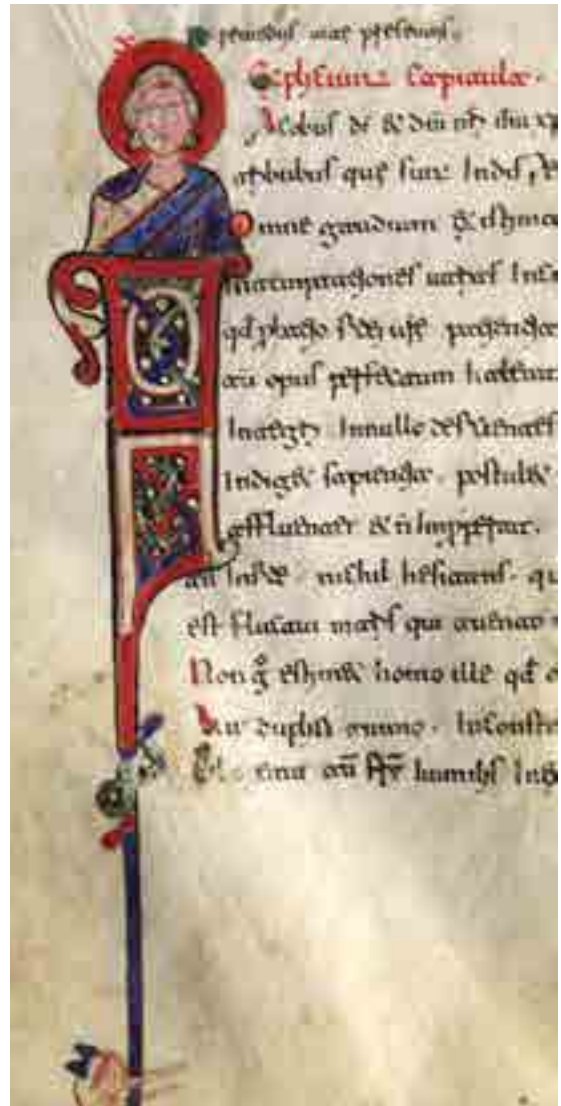 Expliciunt Capitula.
Iacobus di & dni nri ihu xp
tribubus quę sunt In
Omne gaudium existima
temptationes uarias Inci
qd probatio fidei urę patientia
au opus perfectum habeat
Integri Innullo deficientes
Indiget sapientia. postulet
affluenter & n Improperat.
au Infide. nichil hesitans. qu
est fluctui maris qui auento
Non g estimet homo ille qd a
Vir duplex animo. Inconsta
au fr humilis In